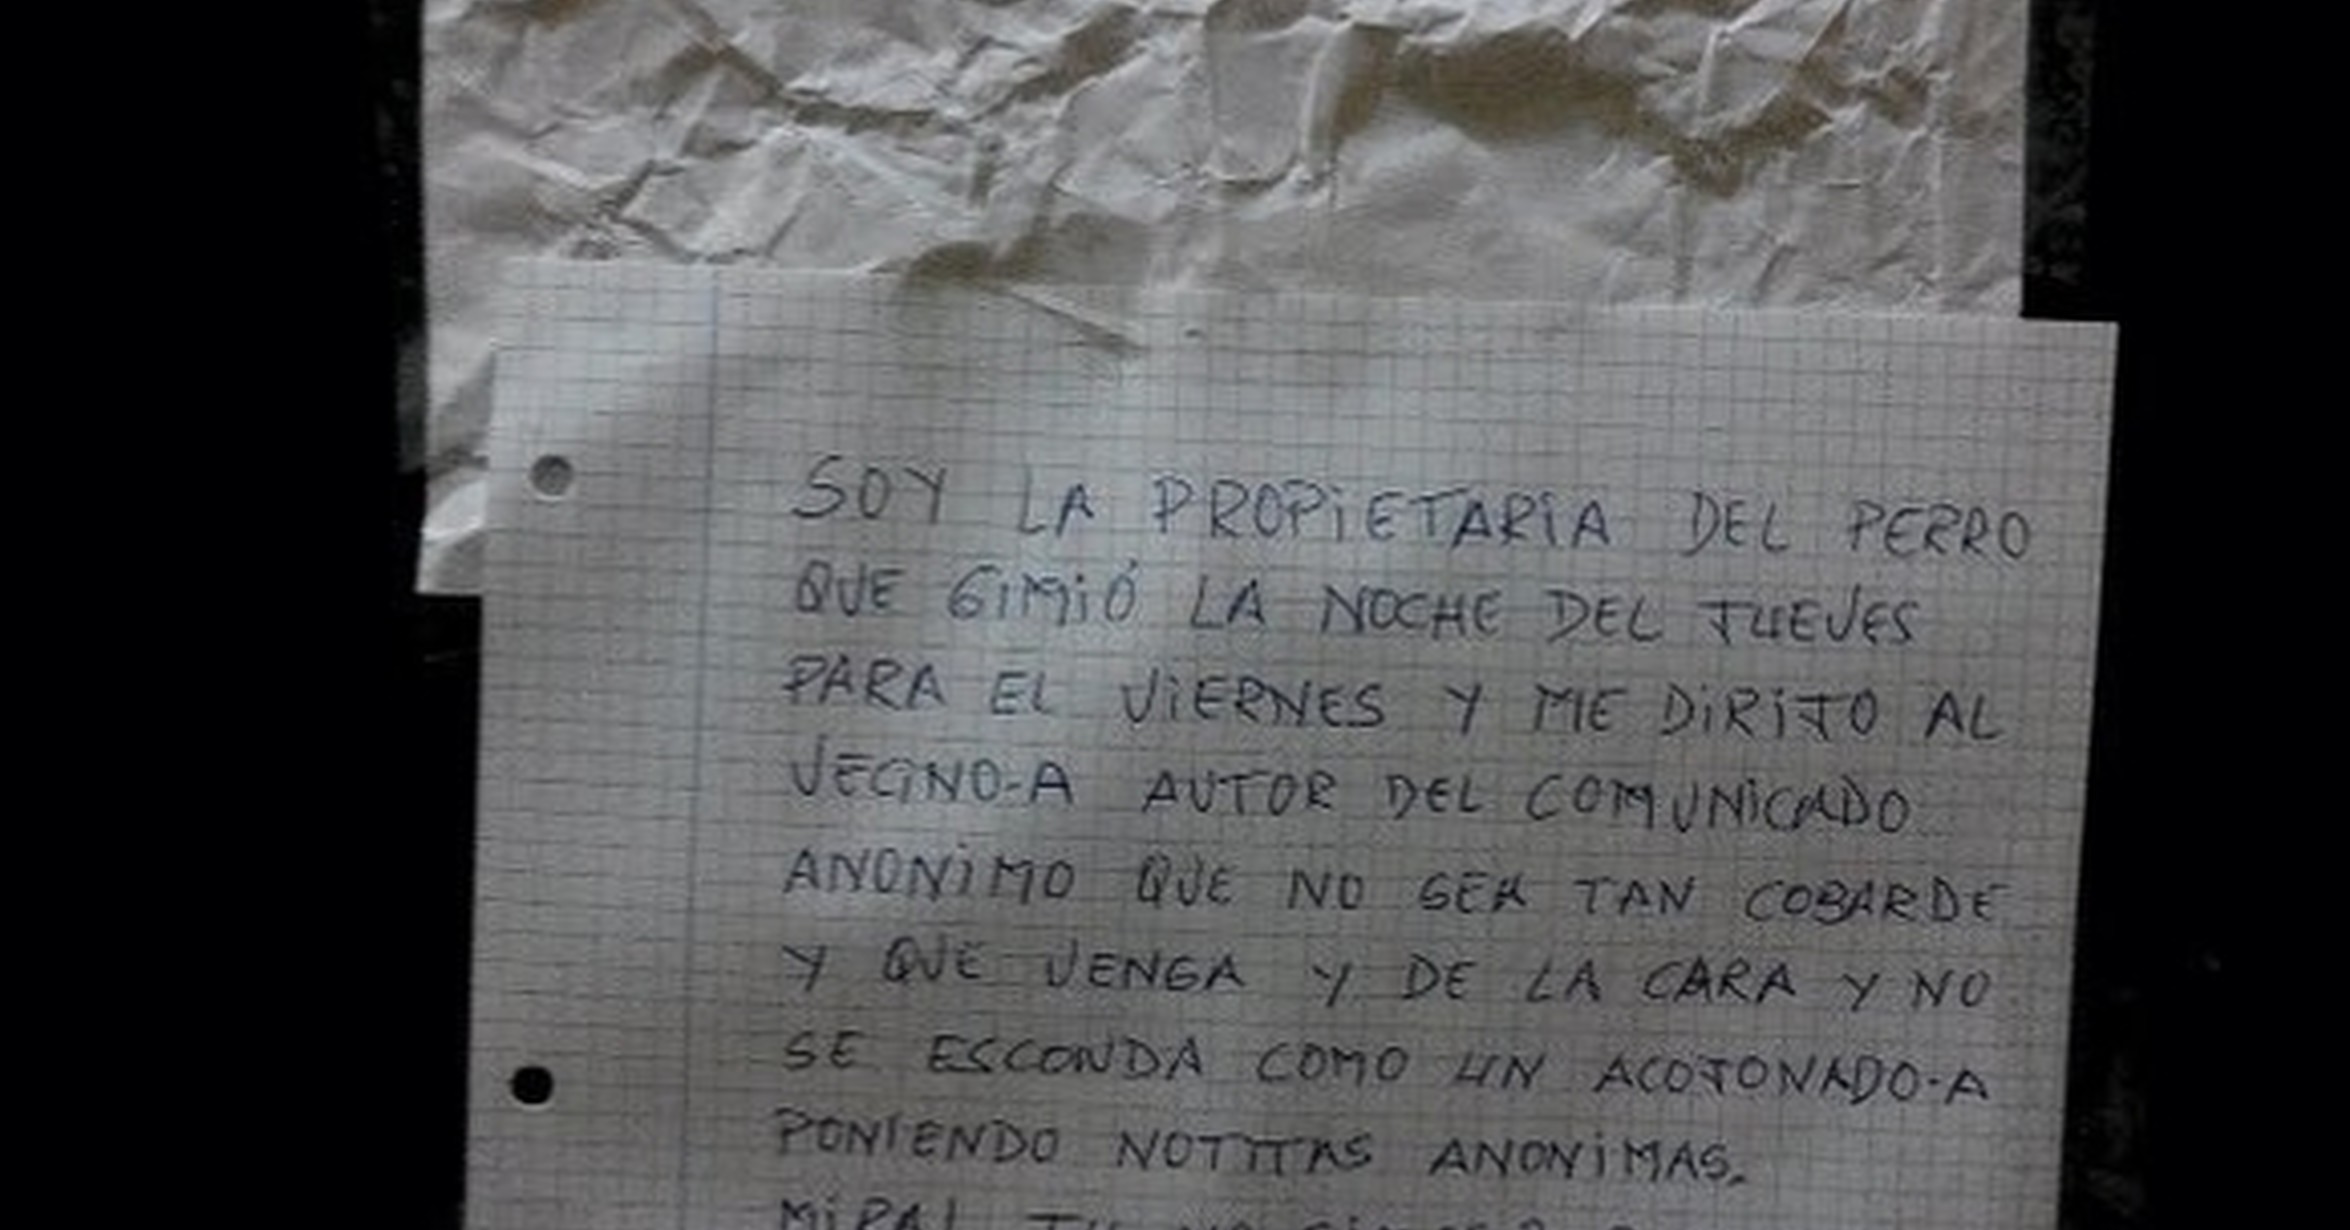 SOY LA PROPiETARiA DEL PERRO
QUE GiMiÓ LA NOCHE DEL JUEVES
PARA EL ViERNES Y ME DiRiJO AL
VECiNO-A AUTOR DEL COMUNiCADO
ANONiMO QUE NO SEA TAN COBARDE
Y QUE VENGA Y DE LA CARA Y NO
SE ESCONDA COMO UN ACOJONADO-A
PONIENDO NOTITAS ANONiMAS.
MiRA!